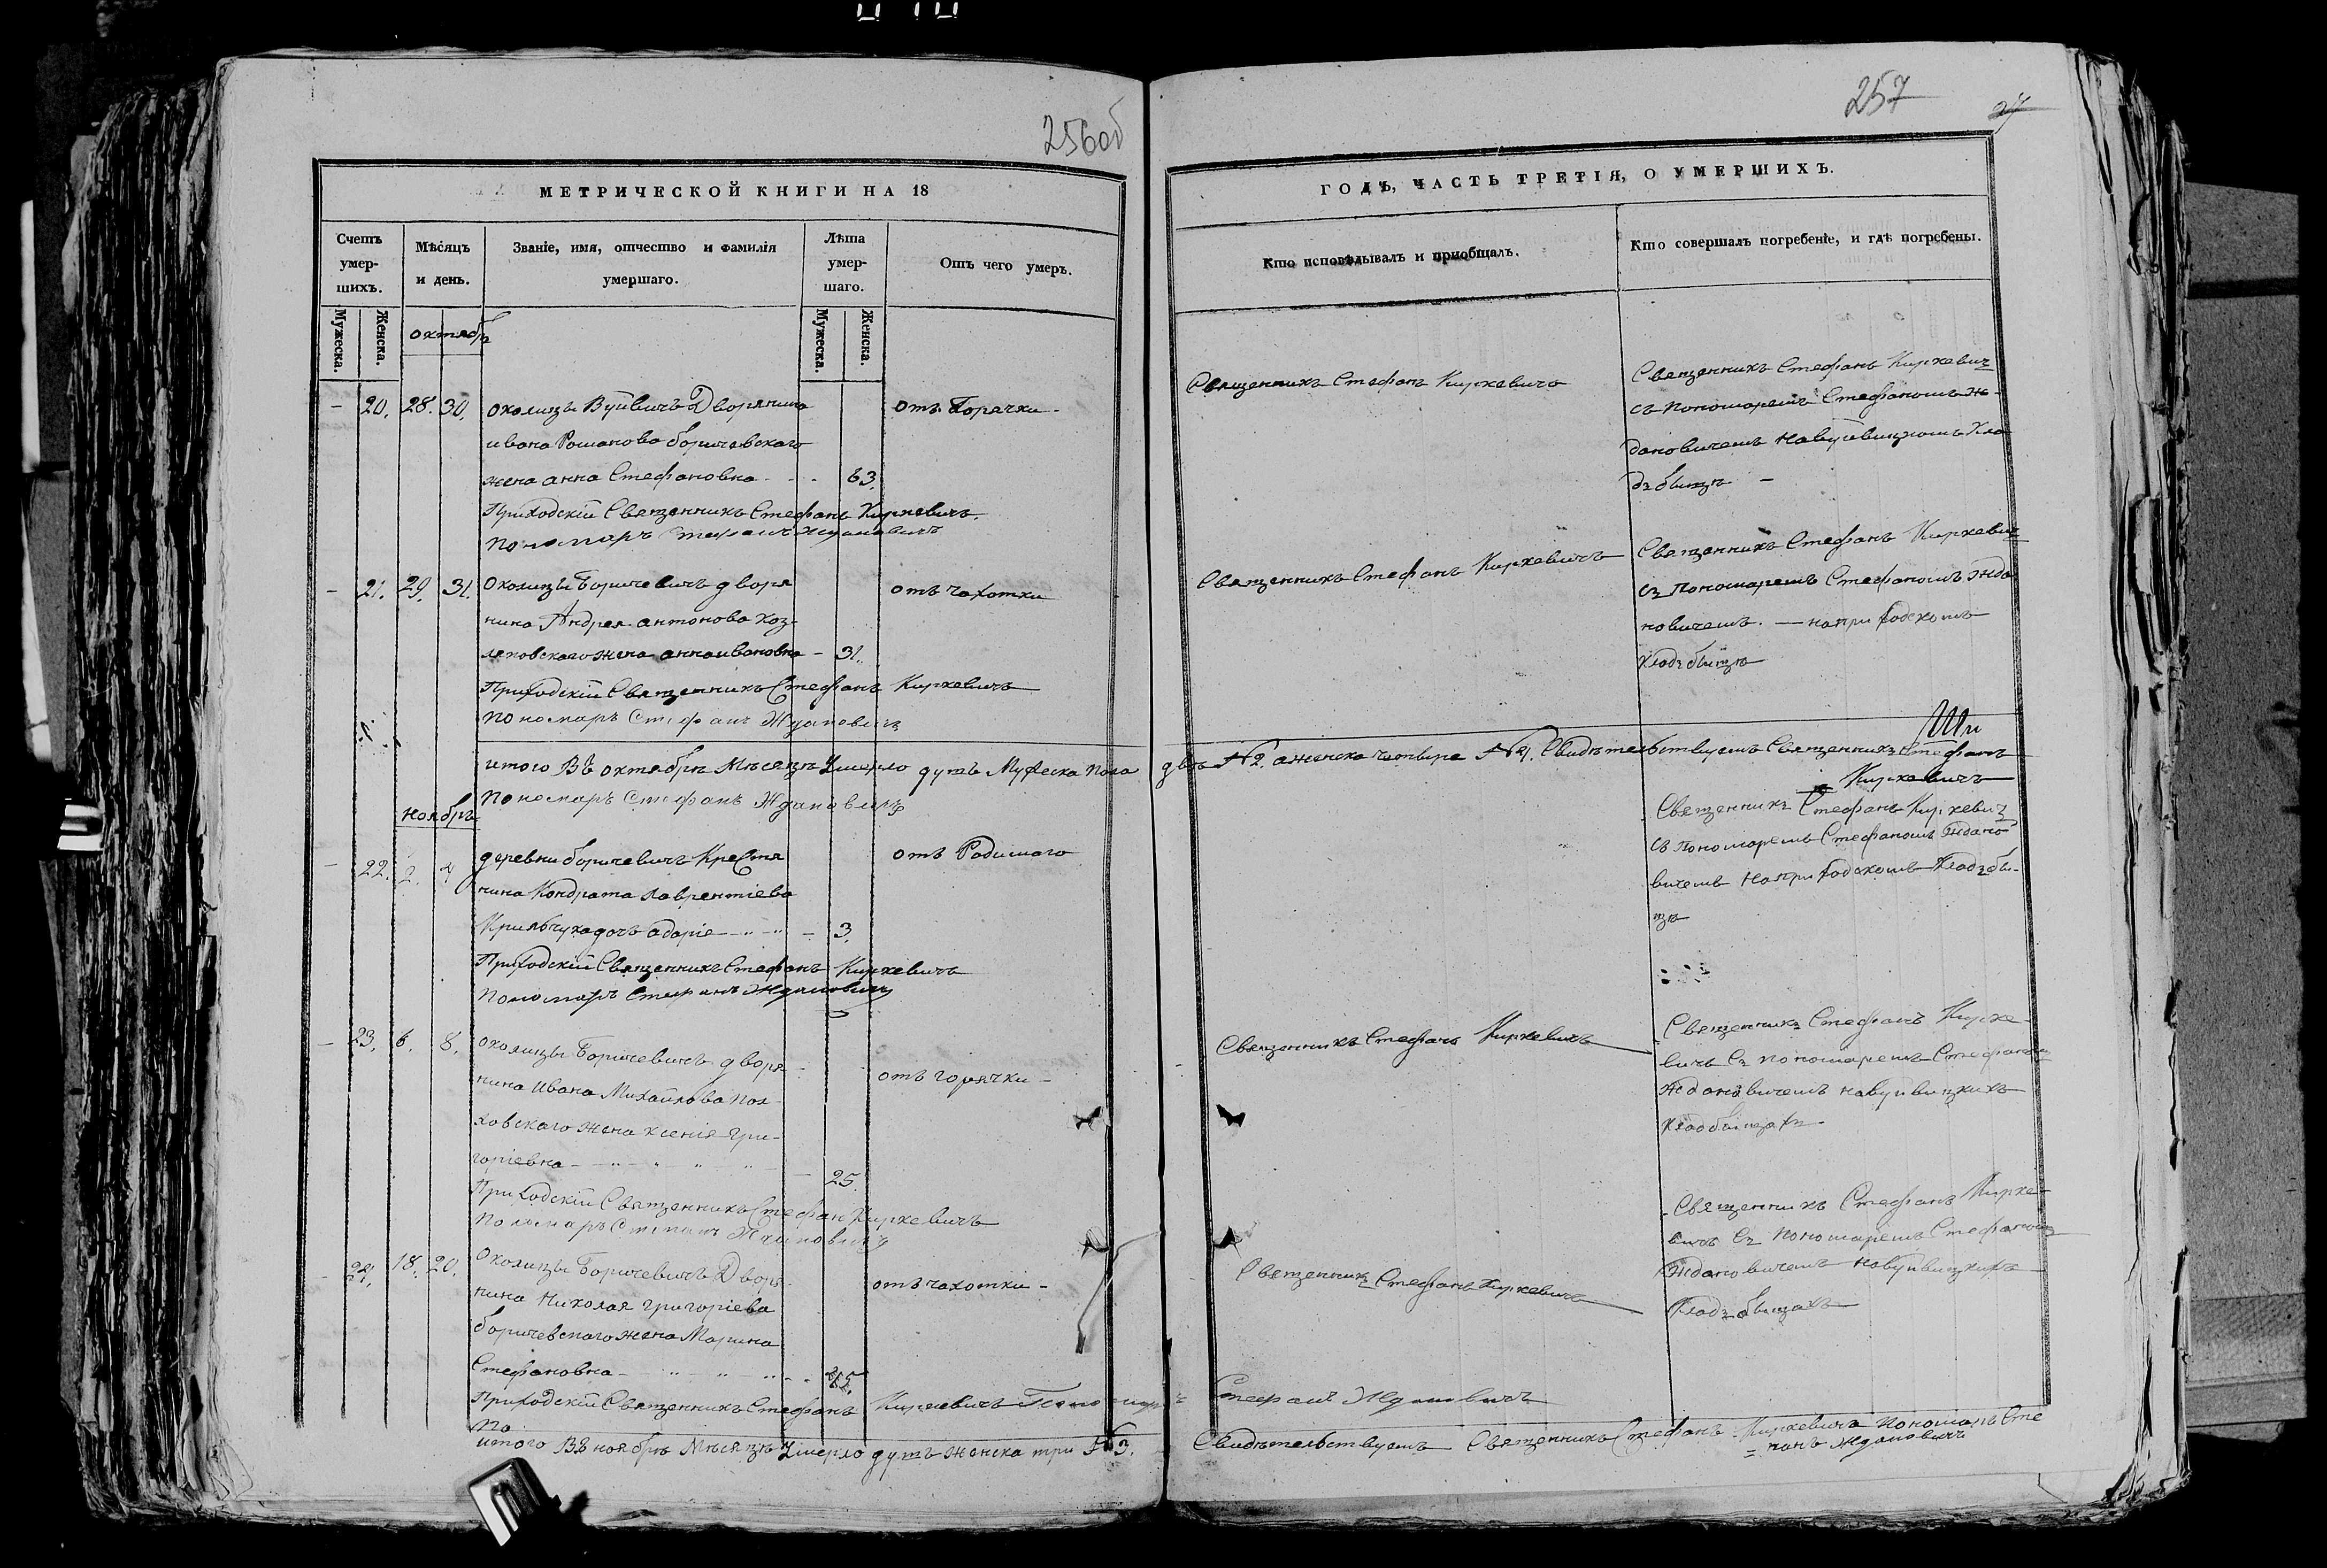 256об
МЕТРИЧЕСКОЙ КНИГИ НА 18
Счетъ умер-шихъ.
Мѣсяцъ и день.
Званіе, имя, отчество и фамилія умершаго.
Лѣта умер-шаго.
Отъ чего умеръ.
Мужеска.
Женска.
Мужеска.
Женска.
октябръ
– 20. 28. 30. околицы Вуйвичъ Дворянина отъ Горячки -
ивана Романова боричевскаго
жена анна Стефановна - - - 63.
Приходскій Священникъ Стефанъ Киркевичъ.
Пономаръ Стефанъ Ждановичъ
– 21. 29. 31. Околицы Боричевичъ дворя отъ чахотки
нина Андрея антонова Коз-
ляковскаго жена анна ивановна – 31.
Приходскій Священникъ Стефанъ Киркевичъ
Пономаръ Стефанъ Ждановичъ
итого Въ октябрѣ Мѣсяцѣ Умерло душъ Мужеска Пола
Пономаръ Стефанъ Ждановичъ
ноябръ
– 22. 2. 4 деревни боричевичъ Крестья отъ Родимаго
нина Кондрата Лаврентіева
дочъ – 3.
Приходскій Священникъ Стефанъ Киркевичъ
Пономаръ Стефанъ Ждановичъ
– 23. 6. 8. околицы Боричевичъ дворя- отъ горячки –
нина Ивана Михайлова
жена ксенія Гри-
горіевна – 25.
Приходскій Священникъ Стефан Киркевичъ
Пономаръ Стефанъ Ждановичъ
24. 18. 20. Околицы Боричевичъ Дворя- отъ чахотки –
нина Николая григоріева
боричевскаго жена Марина
Стефановна –
Приходскій Священникъ Стефанъ Киркевичъ Пономаръ
По
итого Въ ноябрѣ Мѣсяцѣ Умерло душъ женска три №3.
257
27
ГОДЪ, ЧАСТЬ ТРЕТІЯ, О УМЕРШИХЪ.
Кто исповѣдывалъ и приобщалъ.
Кто совершалъ погребеніе, и гдѣ погребены.
Священникъ Стефанъ Киркевичъ
Священникъ Стефанъ Киркевичъ
съ пономаремъ Стефаномъ Ж-
дановичемъ на вуйвицкомъ Кла
дъбищѣ –
Священникъ Стефанъ Киркевичъ
Священникъ Стефанъ Киркевичъ
съ Пономаремъ Стефаномъ Жда
новичемъ. – на приходскомъ
Кладъбищѣ
два №2. а женска четыре №4. Свидѣтельствуемъ Священникъ Стефанъ
Киркевичъ
Священникъ Стефанъ Киркевичъ
съ Пономаремъ Стефаномъ Ждано
вичемъ на приходскомъ Кладъби-
щѣ
Священникъ Стефанъ Киркевичъ
Священникъ Стефанъ Кирке-
вичъ Съ пономаремъ Стефаномъ
Ждановичемъ на вуйвицкихъ
кладбищахъ.
Священникъ Стефанъ Киркевичъ
Священникъ Стефанъ Кирке-
вичъ Съ Пономаремъ Стефаномъ
Ждановичемъ на вуйвицкихъ
Кладъбищахъ
Стефанъ Ждановичъ
Свидѣтельствуемъ Священникъ Стефанъ Киркевичъ Пономаръ Сте
панъ Ждановичъ